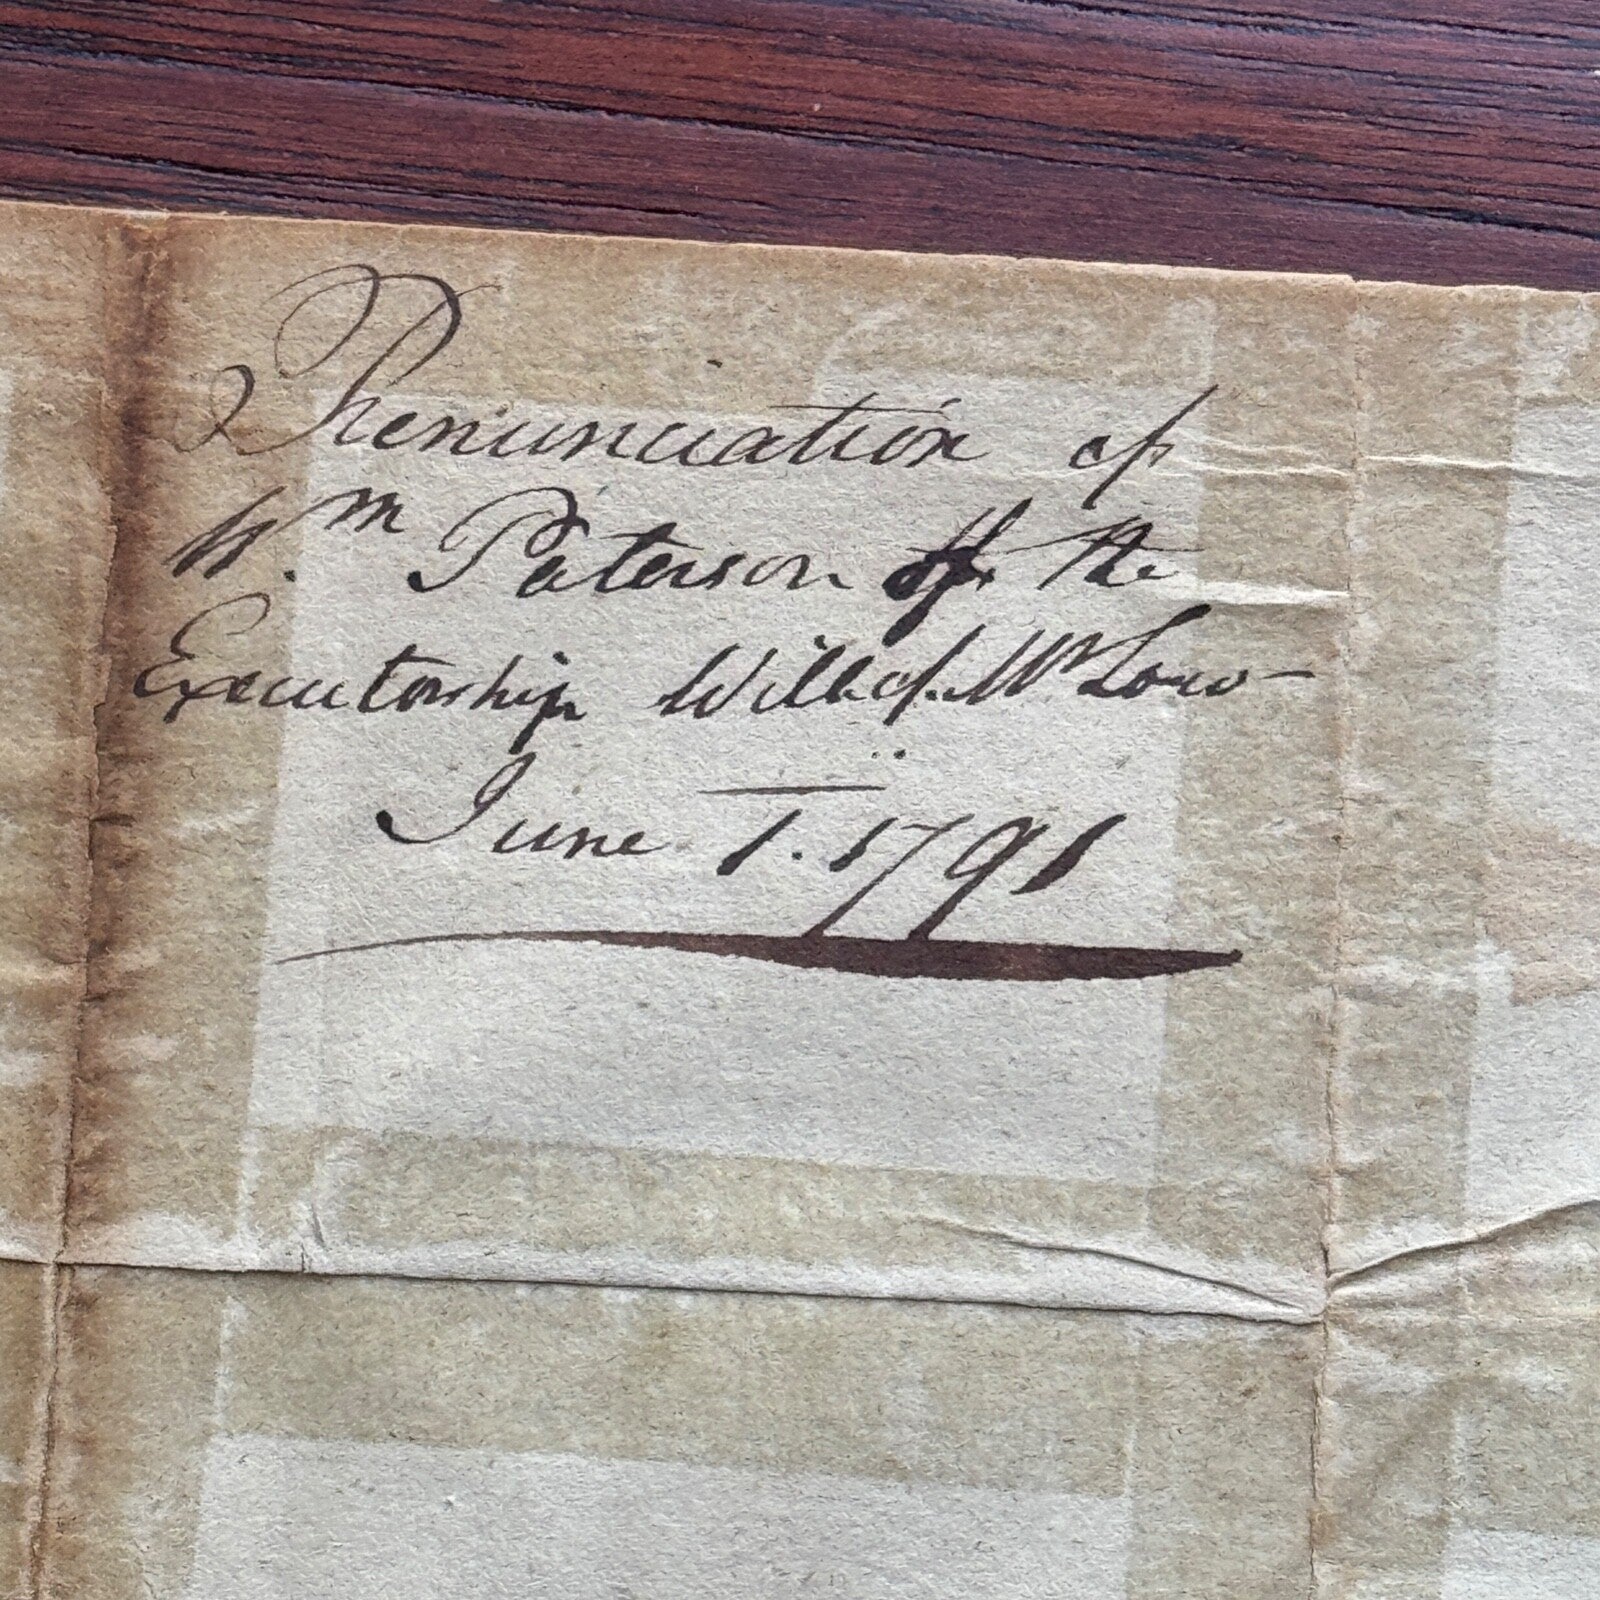 Renunciation of
Wm. Paterson of the
Executorship Will of Mr Low
June 1. 1791